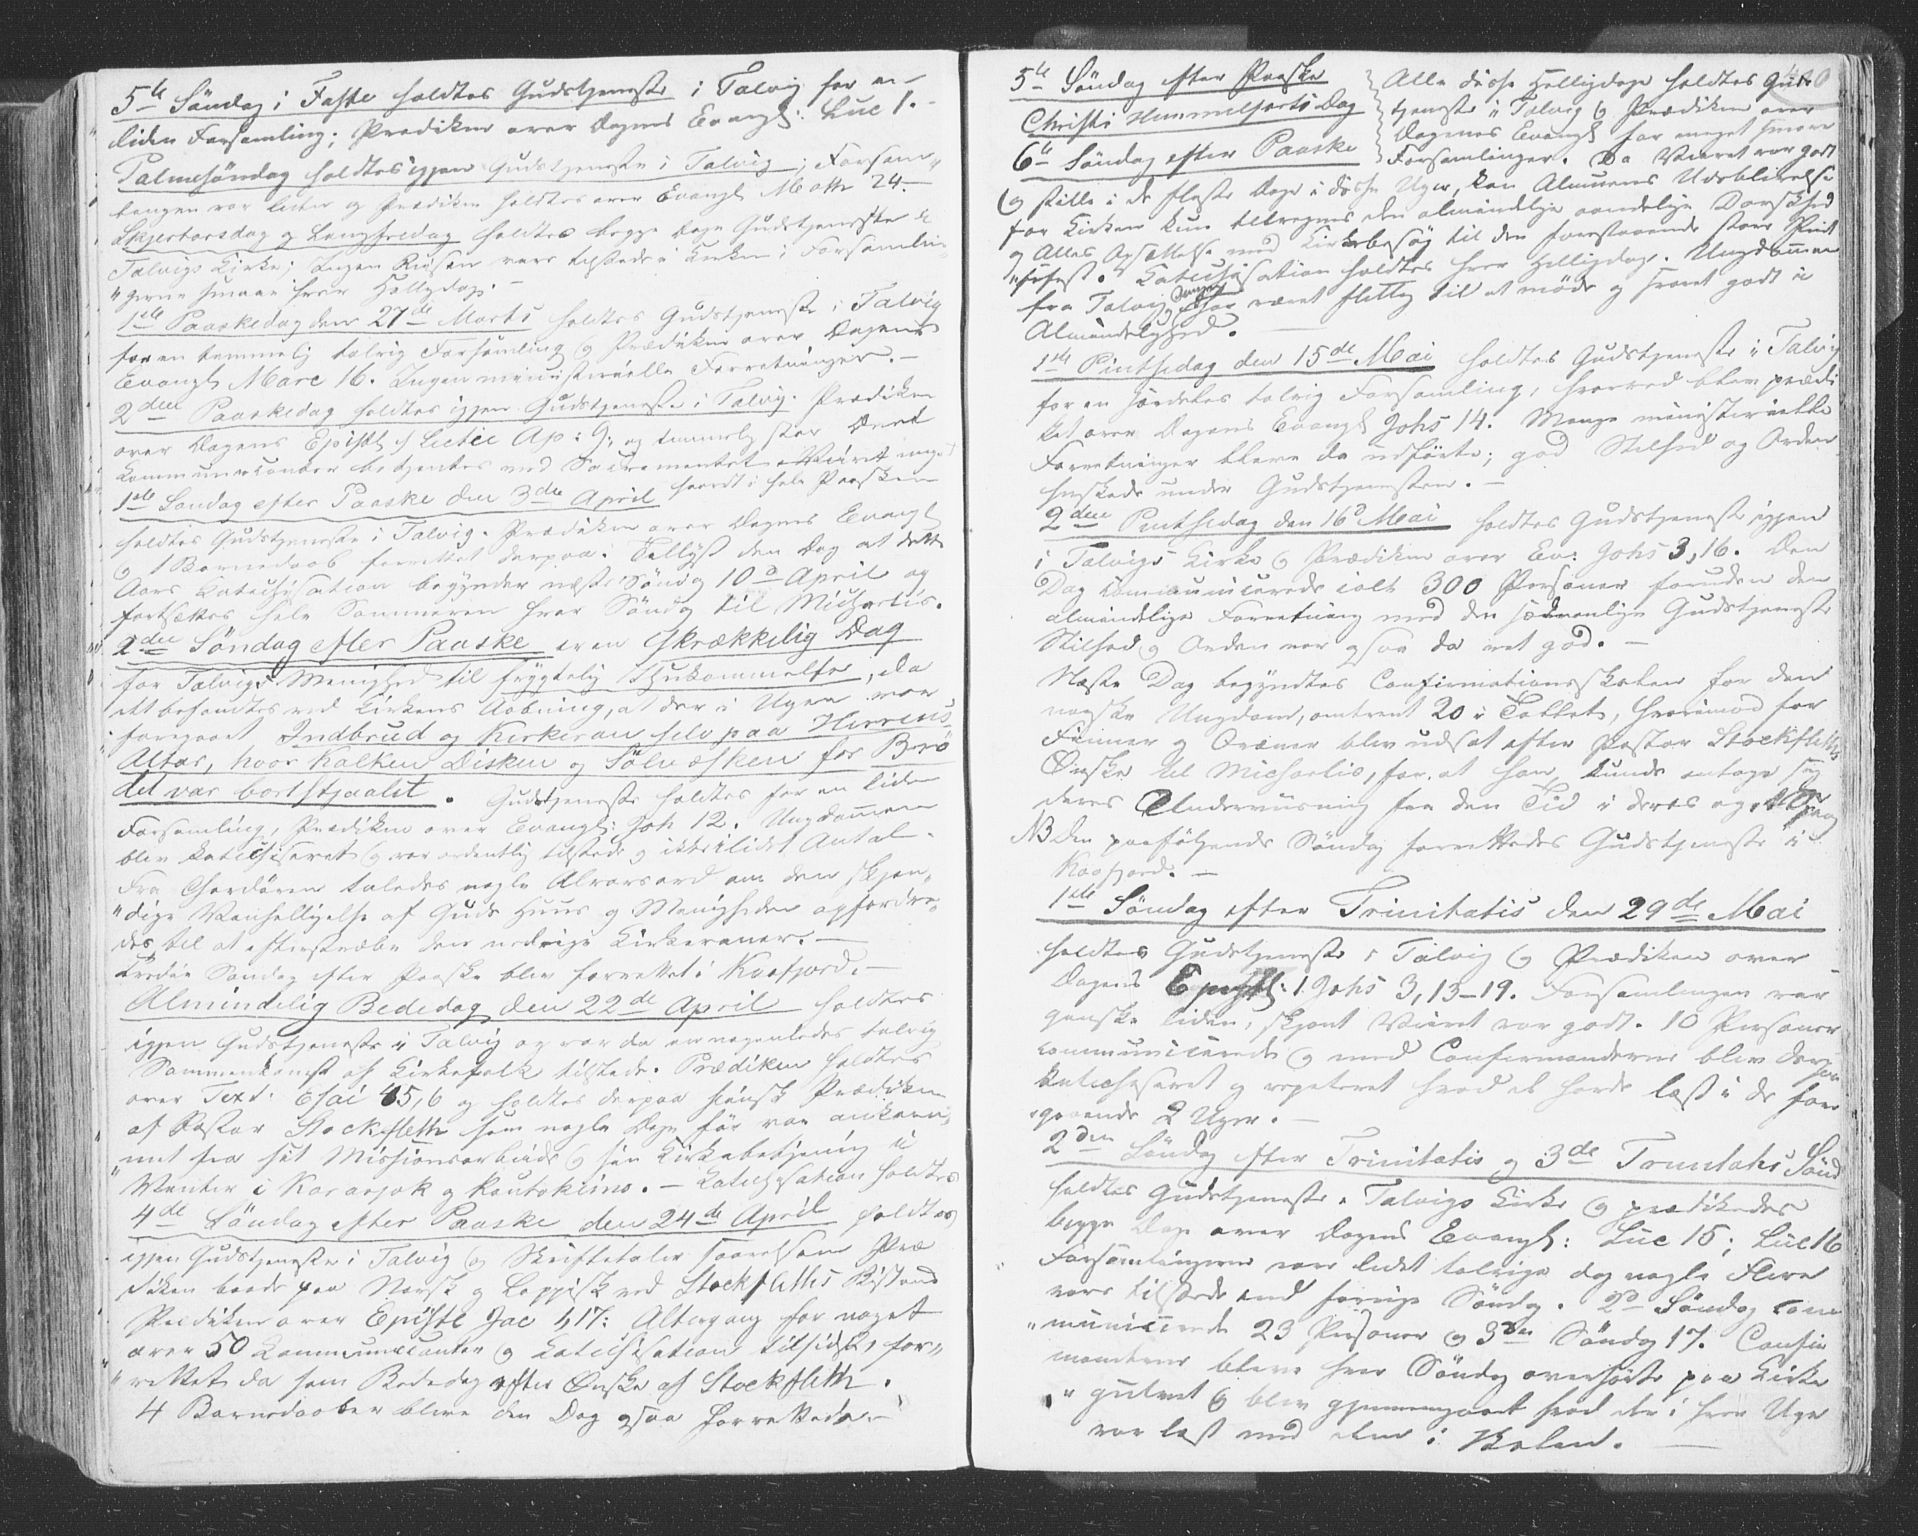 5te Søndag i Faste holdtes Gudstjeneste i Talvig for en
liden Forsamling; Prædiken over Dagens Evangl: Luc 1.
Palmesøndag holdtes igjen Gudstjeneste i Talvig; Forsam-
lingen var liden og Prædiken holdtes over Evangl Math 24.
Skjertorsdag og Langfredag holdtes begge Dage Gudstjeneste i
Talvigs Kirke; Ingen Reisen vare tilstede i Kirken; Forsamlin-
gerne smaae hver Helligdag.
1ste Paaskedag den 27de Marts holdtes Gudstjeneste i Talvig
for en temmelig talrig Forsamling og Prædiken over Dagens
Evangl Marc 16. Ingen ministerielle Forretninger.
2den Paaskedag holdtes igjen Gudstjeneste i Talvig. Prædiken
over Dagens Epistel Ap: G; og temmelig stor
Kommunicanter betjentes med Sacramentet Veiret meget
1ste Søndag efter Paaske den 3die April haardt i hele Paasken
holdtes Gudstjeneste i Talvig. Prædiken over Dagens Evangl
og 1 Barnedaab forrettet derpaa. Tillyst den Dag at dette
Aars Catechisation begynder næste Søndag 10de April og
fortsættes hele Sommeren hver Søndag til Michaelis.
2den Søndag efter Paaske er en Skrækkelig Dag
for Talvigs Menighed til frygtelig Ihukommelse, da
det befandtes ved Kirkens Aabning, at der i Ugen var
foregaaet Indbrud og Kirkeran selv paa Herrens
Altar, hvor Kalken Disken og Sølvæsken for Brø
det var bortstjaalet. Gudstjeneste holdtes for en liden
Forsamling, Prædiken over Evangl: Joh 12. Ungdommen
blev katechiseret og var ordentlig tilstede og i et lidet Antal.
Fra Chordøren taledes nogle Alvorsord om den skjæn-
dige Vanhelligelse af Guds Huus og Menigheden opfordre-
des til at efterstræbe den nedrige Kirkeraner.
Tredie Søndag efter Paaske blev forrettet i Kaafjord.
Almindelig Bededag den 22de April holdtes
igjen Gudstjeneste i Talvig og var da en nogenledes talrig
Sammenkomst af Kirkefolk tilstede. Prædiken holdtes
over Text: Esai 45,6 og holdtes derpaa finsk Prædiken
af Pastor Stockfleth som nogle Dage før var ankom-
met fra sit Missionsarbeide og sin Kirkebetjening i
Vinter i Karasjok og Kautokeino. Katechisation holdtes
4de Søndag efter Paaske den 24de April holdtes
igjen Gudstjeneste i Talvig og Skriftetaler saavelsom Præ
diken baade paa Norsk og Lappisk ved Stockfleths Bistand
Prædiken over Epistl Jac 1,17: Altergang for noget
over 50 Kommunicanter og Katechisation tilsidst, for-
rettet da som Bededag efter Ønske af Stockfleth.
4 Barnedaaber bleve den Dag ogsaa forrettede.
5te Søndag efter Paaske
Christi Himmelfarts Dag
6te Søndag efter Paaske
Alle disse Helligdage holdtes Guds
tjeneste i Talvig og Prædiken over
Dagenes Evangl for meget smaae
Forsamlinger. Da Veiret var godt
og stille i de fleste Dage i disse Uger, kan Almuens Udeblivelse
fra Kirken kun tilregnes den almindelige aandelige Dorskhed
og Alles Opsættelse med Kirkebesøg til den forestaaende store Pint
sefest. Katechisation holdtes hver Helligdag. Ungdommen
fra Talvig Sogn har været flittig til at møde og svaret godt i
Almindelighed.
1ste Pintsedag den 15de Mai holdtes Gudstjeneste i Talvig
for en særdeles talrig Forsamling, hvorved blev prædi
ket over Dagens Evangl Johs 14. Mange ministerielle
Forretninger bleve da udførte; god Stilhed og Orden
herskede under Gudstjenesten.
2den Pintsedag den 16d Mai holdtes Gudstjeneste igjen
i Talvigs Kirke og Prædiken over Ev: Johs 3,16. Den
Dag communicerede ialt 300 Personer foruden den
almindelige Forretning med den sædvanlige Gudstjeneste
Stilhed og Orden var ogsaa da ret god.
Næste Dag begyndtes Confirmationsskolen for den
norske Ungdom, omtrent 20 i Tallet, hvorimod for
Finner og Qvæner blev udsat efter Pastor Stockfleths
Ønske til Michaelis, for at han kunde antage sig
deres Underviisning fra den Tid i deres eget Sprog
NB Den paafølgende Søndag forrettedes Gudstjeneste i
Kaafjord.
1ste Søndag efter Trinitatis den 29de Mai
holdtes Gudstjeneste i Talvig og Prædiken over
Dagens Epistl: 1. Johs 3,13-19. Forsamlingen var
ganske liden, skjønt Veiret var godt. 10 Personer
communicerede og med Confirmanderne blev derpaa
katechiseret og repeteret hvad de havde læst i de fore
gaaende 2 Uger.
2den Søndag efter Trinitatis og 3de Trinitatis Sønd
holdtes Gudstjeneste i Talvigs Kirke og prædikedes
begge Dage over Dagens Evangl: Luc 15; Luc 16
Forsamlingerne vare lidet talrige dog nogle Flere
vare tilstede end forrige Søndag. 2d Søndag com
municerede 23 Personer og 3die Søndag 17. Confir
manderne bleve hver Søndag overhørte paa Kirke
gulvet og blev gjennemgaaet hvad der i hver Uge
var læst med dem i Skolen.